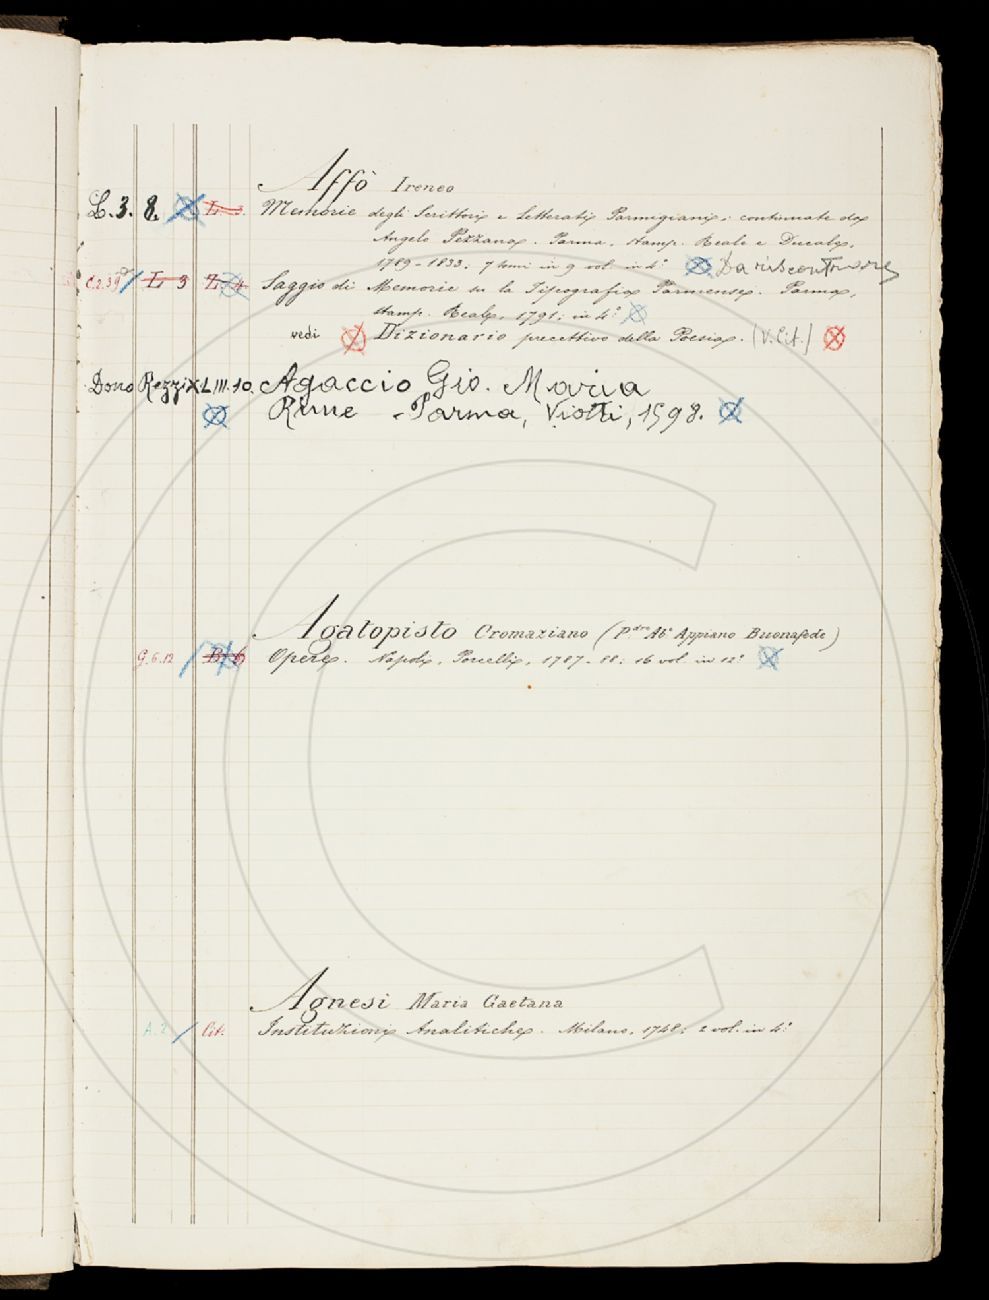 Affò Ireneo
L. 3. 8. L 3. Memorie degli Scrittori e Letterati Parmigiani; continuate da
Angelo Pezzana. Parma, stamp. Reale e Ducale,
1789-1833; 7 tomi in 9 vol. in 4.° Da riscontrare
C.2.39 L 3 L 4 Saggio di Memorie su la Tipografia Parmense. Parma,
stamp. Reale, 1791; in 4.°
vedi Dizionario precettivo della Poesia. (V. Cit.)
Dono Rezzi XLIII.10. Agaccio Gio. Maria
Rime - Parma, Viotti, 1598.
Agatopisto Cromaziano (Pdre Ab.e Appiano Buonafede)
G.6.12 B 6 Opere. Napoli, Porcelli, 1787-88; 16 vol. in 12.°
Agnesi Maria Gaetana
A.2 Cit. Instituzioni Analitiche. Milano, 1748; 2 vol. in 4.°